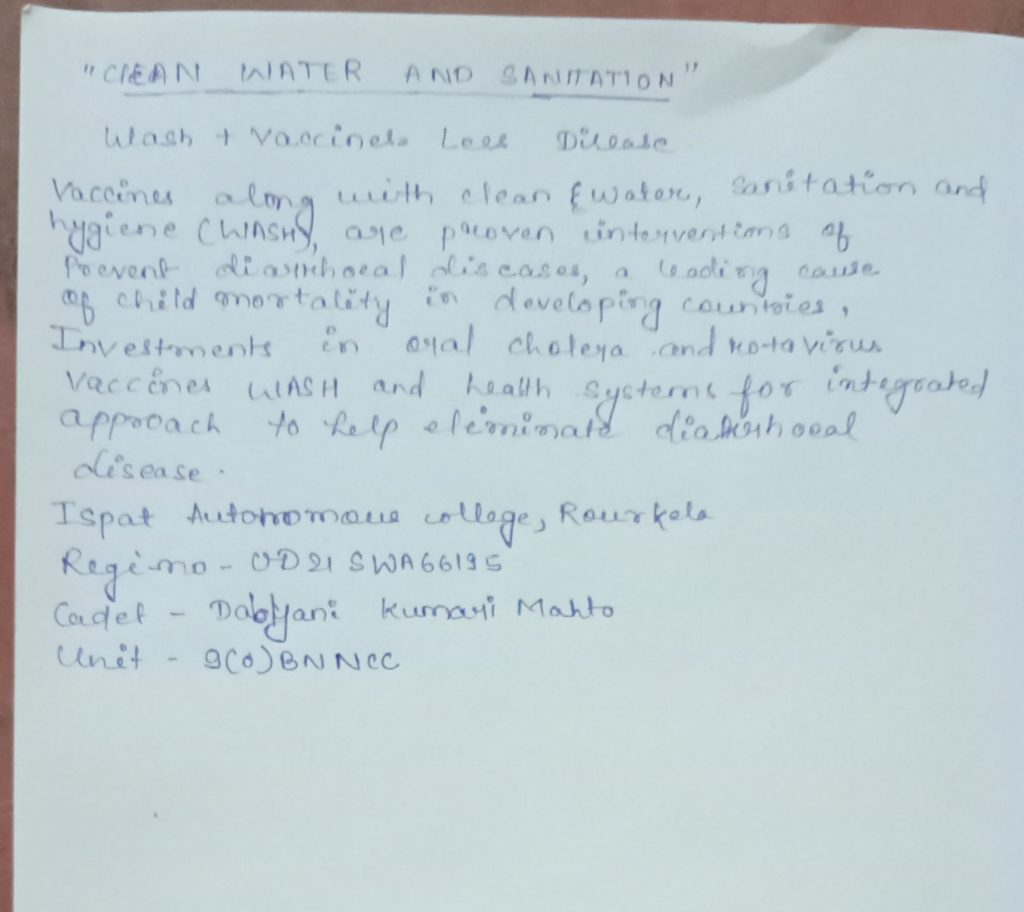 "CLEAN WATER AND SANITATION"
Wash + Vaccines Less Disease
Vaccines along with clean & water, sanitation and
hygiene (WASH), are proven interventions of
Prevent diarrhoeal diseases, a leading cause
of child mortality in developing countries,
Investments in oral cholera and rotavirus
Vaccines WASH and health systems for integrated
approach to help eliminate diarrhoeal
disease.
Ispat Autonomous college, Rourkela
Regi-no - OD21SWA66195
Cadet - Kumari Mahto
Unit - 9(O)BN NCC